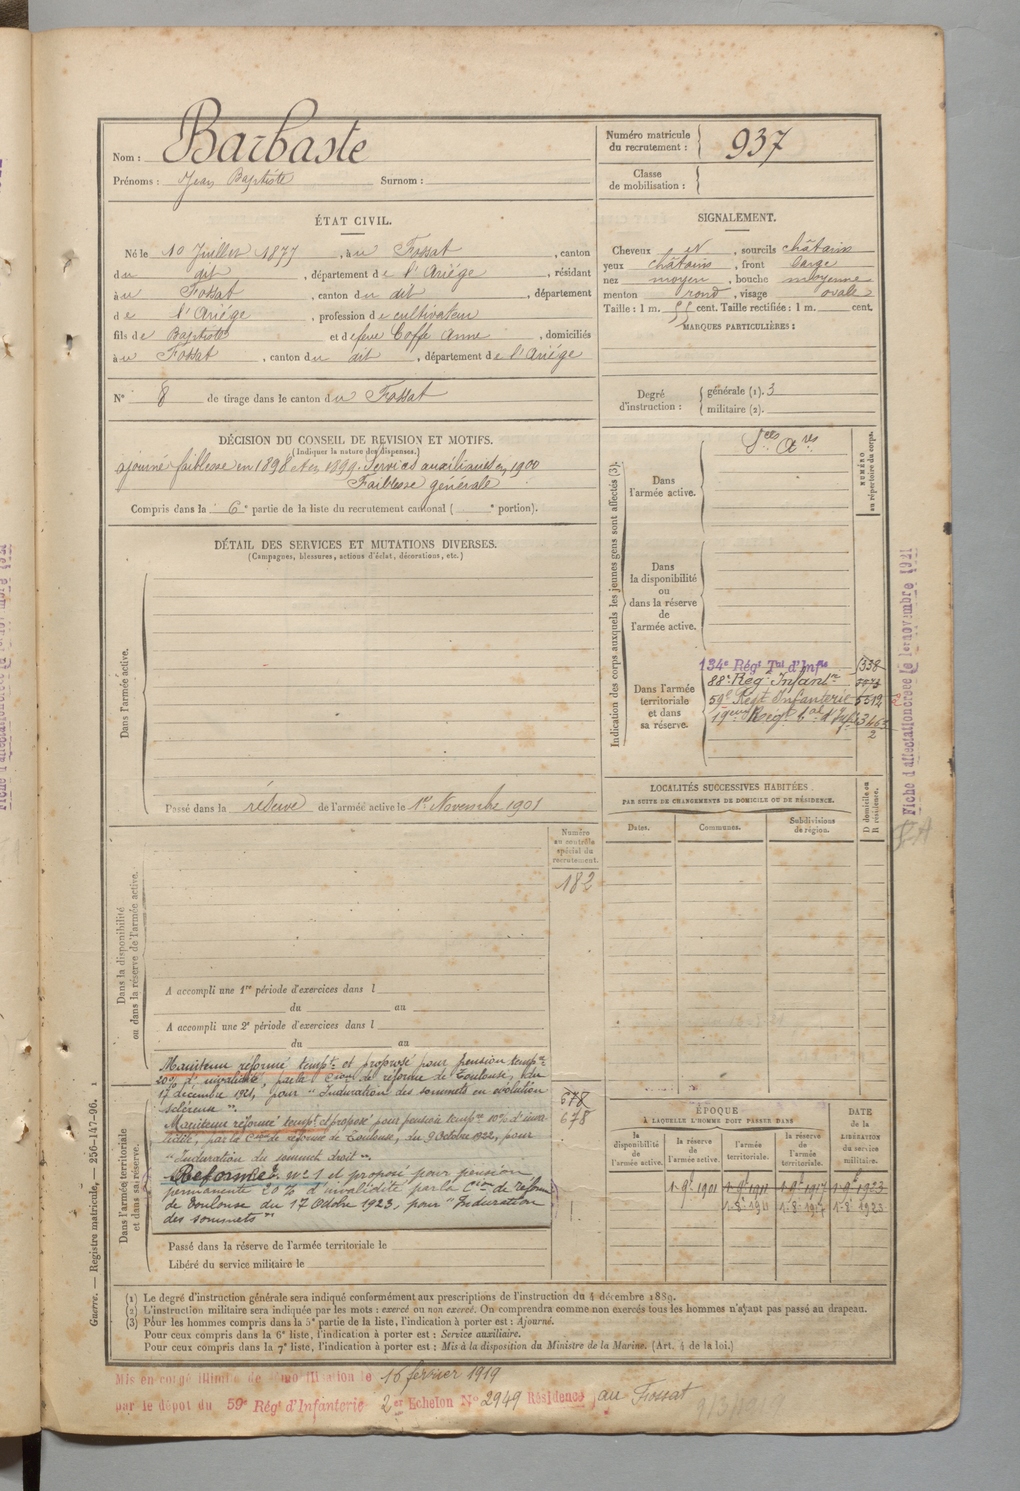 Nom : Barbaste
Prénoms : Jean Baptiste Surnom :
Numéro matricule du recrutement : 937
Classe de mobilisation :
ÉTAT CIVIL.
Né le 10 Juillet 1877, à u Fossat, canton
du dit, département de l'Ariége, résidant
à u Fossat, canton du dit, département
de l'Ariége, profession de cultivateur
fils de Baptiste et de feue Coffe Anne, domiciliés
à u Fossat, canton du dit, département de l'Ariége
N° 8 de tirage dans le canton du Fossat
SIGNALEMENT.
Cheveux et, sourcils châtains
yeux châtains, front large
nez moyen, bouche moyenne
menton rond, visage ovale
Taille : 1 m. 51 cent. Taille rectifiée : 1 m. cent.
MARQUES PARTICULIÈRES :
Degré d'instruction : générale (1). 3
militaire (2).
DÉCISION DU CONSEIL DE REVISION ET MOTIFS.
(Indiquer la nature des dispenses.)
ajourné faiblesse en 1898 et en 1899. Services auxiliaires en 1900
Faiblesse générale
Compris dans la 6e partie de la liste du recrutement cantonal ( e portion).
DÉTAIL DES SERVICES ET MUTATIONS DIVERSES.
(Campagnes, blessures, actions d'éclat, décorations, etc.)
Dans l'armée active.
Passé dans la réserve de l'armée active le 1er Novembre 1901
Indication des corps auxquels les jeunes gens sont affectés (3).
NUMÉRO au répertoire du corps.
Dans l'armée active.
Sces Ares
Dans la disponibilité ou dans la réserve de l'armée active.
Dans l'armée territoriale et dans sa réserve.
134e Régt Tal d'Infie 1338
88e Rég Infantr
59e Régt Infanterie 5512
Fiche d'affectation créée le 1er novembre 1921
LOCALITÉS SUCCESSIVES HABITÉES
PAR SUITE DE CHANGEMENTS DE DOMICILE OU DE RÉSIDENCE.
Dates.
Communes.
Subdivisions de région.
D domicile ou R résidence.
Numéro au contrôle spécial du recrutement.
182
Dans la disponibilité ou dans la réserve de l'armée active.
A accompli une 1re période d'exercices dans l
du au
A accompli une 2e période d'exercices dans l
du au
Dans l'armée territoriale et dans sa réserve.
Maintenu réformé tempre et proposé pour pension tempre
20% d'invalidité, par la Cion de réforme de Toulouse, du
17 décembre 1921, pour "Induration des sommets en évolution
scléreuse".
Maintenu réformé tempre et proposé pour pension tempre 10% d'inva-
lidité, par la Cion de réforme de Toulouse, du 9 Octobre 1922, pour
"Induration du sommet droit".
Réformé n° 1 et proposé pour pension
permanente 20% d'invalidité par la Cion de réforme
de Toulouse du 17 Octobre 1923, pour "Induration
des sommets"
678
678
Passé dans la réserve de l'armée territoriale le
Libéré du service militaire le
ÉPOQUE
À LAQUELLE L'HOMME DOIT PASSER DANS
la disponibilité de l'armée active.
la réserve de l'armée active.
l'armée territoriale.
la réserve de l'armée territoriale.
DATE de la LIBÉRATION du service militaire.
1-9e 1901 1-9e 1911 1-9e 1917 1-9e 1923
1-8e 1911 1-8e 1917 1-8e 1923
(1) Le degré d'instruction générale sera indiqué conformément aux prescriptions de l'instruction du 4 décembre 1889.
(2) L'instruction militaire sera indiquée par les mots : exercé ou non exercé. On comprendra comme non exercés tous les hommes n'ayant pas passé au drapeau.
(3) Pour les hommes compris dans la 5e partie de la liste, l'indication à porter est : Ajourné.
Pour ceux compris dans la 6e liste, l'indication à porter est : Service auxiliaire.
Pour ceux compris dans la 7e liste, l'indication à porter est : Mis à la disposition du Ministre de la Marine. (Art. 4 de la loi.)
Guerre. — Registre matricule. — 256-147-96.
Mis en congé illimité de démobilisation le 16 février 1919
par le dépôt du 59e Régt d'Infanterie 2er Echelon N° 2949 Résidence au Fossat
9/3/1919